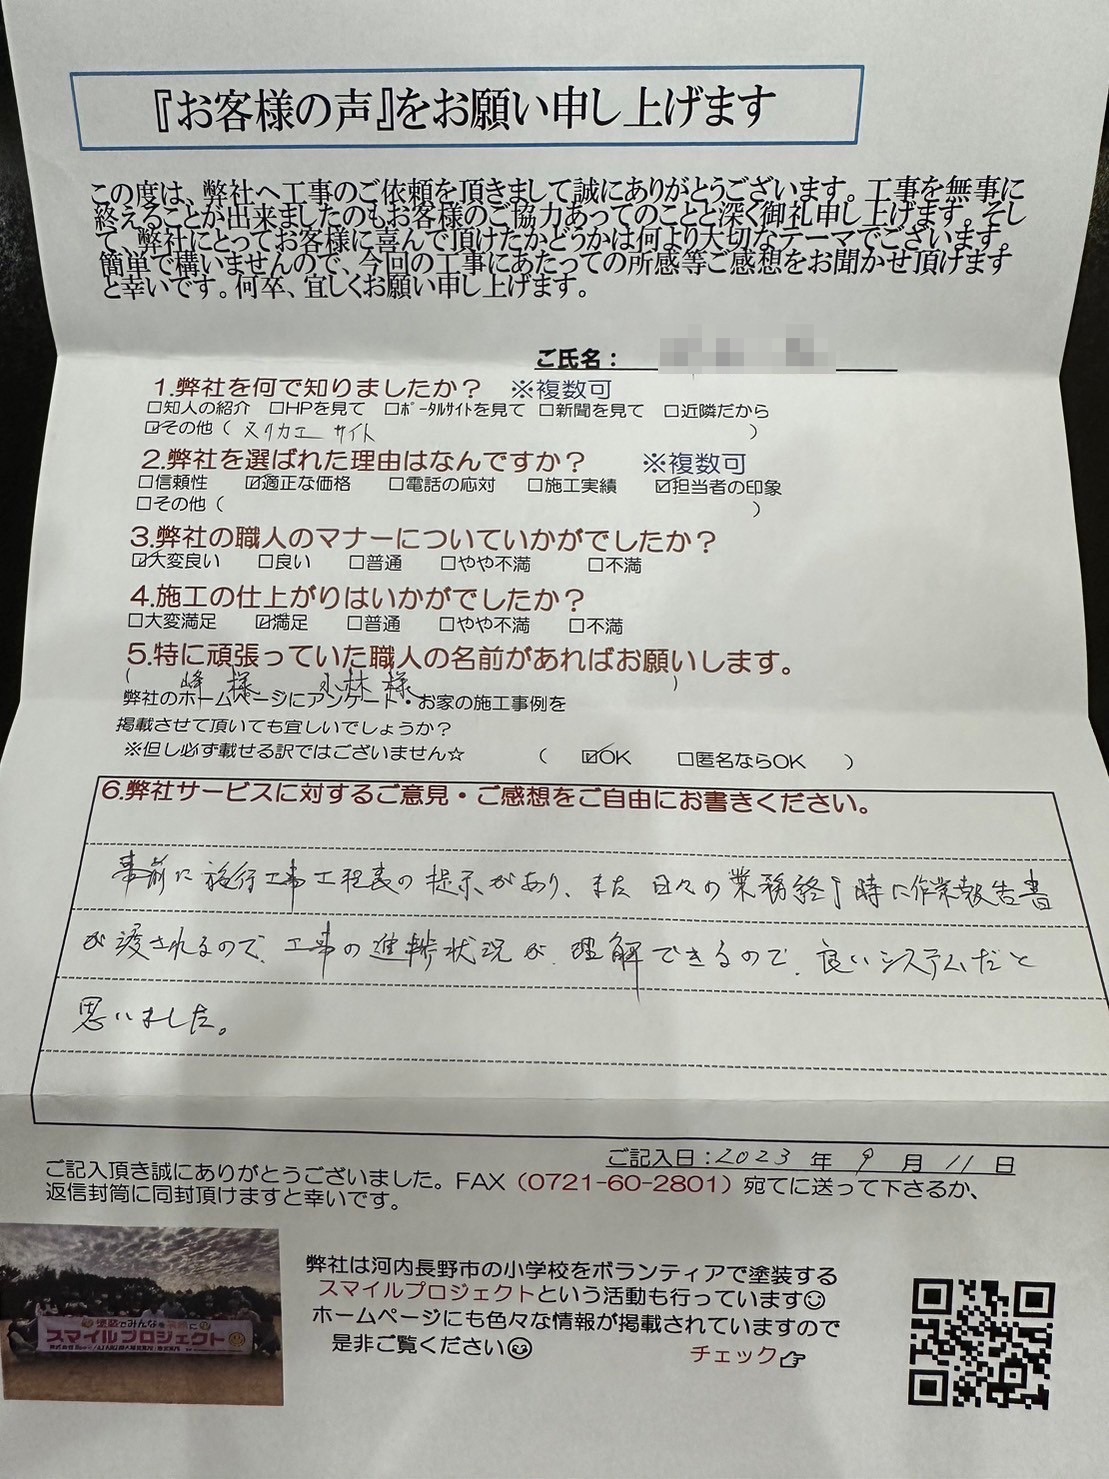 『お客様の声』をお願い申し上げます
この度は、弊社へ工事のご依頼を頂きまして誠にありがとうございます。工事を無事に
終えることが出来ましたのもお客様のご協力あってのことと深く御礼申し上げます。そし
て、弊社にとってお客様に喜んで頂けたかどうかは何より大切なテーマでございます。
簡単で構いませんので、今回の工事にあたっての所感等ご感想をお聞かせ頂けます
と幸いです。何卒、宜しくお願い申し上げます。
ご氏名：
1.弊社を何で知りましたか？ ※複数可
□知人の紹介 □HPを見て □ﾎﾟｰﾀﾙｻｲﾄを見て □新聞を見て □近隣だから
☑その他（ ヌリカエ サイト ）
2.弊社を選ばれた理由はなんですか？ ※複数可
□信頼性 ☑適正な価格 □電話の応対 □施工実績 ☑担当者の印象
□その他（ ）
3.弊社の職人のマナーについていかがでしたか？
☑大変良い □良い □普通 □やや不満 □不満
4.施工の仕上がりはいかがでしたか？
□大変満足 ☑満足 □普通 □やや不満 □不満
5.特に頑張っていた職人の名前があればお願いします。
（ 峰様 小林様 ）
弊社のホームページにアンケート・お家の施工事例を
掲載させて頂いても宜しいでしょうか？
※但し必ず載せる訳ではございません☆ （ ☑OK □匿名ならOK ）
6.弊社サービスに対するご意見・ご感想をご自由にお書きください。
事前に施行工事工程表の提示があり、また日々の業務終了時に作業報告書
が渡されるので、工事の進捗状況が理解できるので、良いシステムだと
思いました。
ご記入日：2023 年 9 月 11 日
ご記入頂き誠にありがとうございました。FAX（0721-60-2801）宛てに送って下さるか、
返信封筒に同封頂けますと幸いです。
塗装でみんなを笑顔に
スマイルプロジェクト
弊社は河内長野市の小学校をボランティアで塗装する
スマイルプロジェクトという活動も行っています☺
ホームページにも色々な情報が掲載されていますので
是非ご覧ください☺
チェック☞